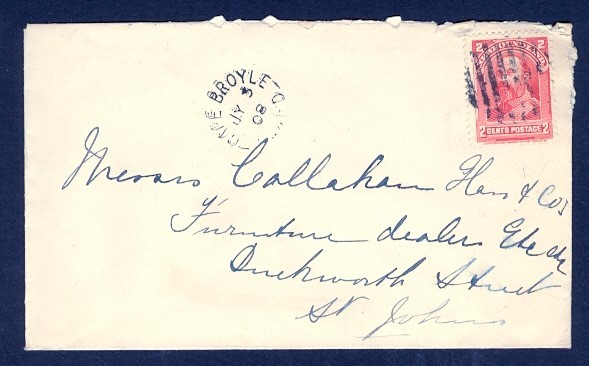 2 NEWFOUNDLAND 2
2 CENTS POSTAGE 2
CAPE BROYLE
JY 3
08
Messrs Callahan & Cos
Furniture dealers Etc Etc
Duckworth Street
St Johns